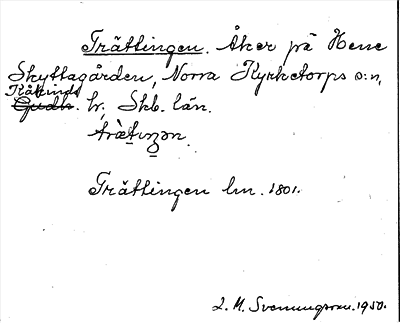 Trättingen. Åker på Hene
Skyttagården, Norra Kyrketorps s:n,
Kåkinds
Gudh. hr, Skb. län.
trætıŋən.
Trättingen lm. 1801.
L. M. Svenungsson. 1950.